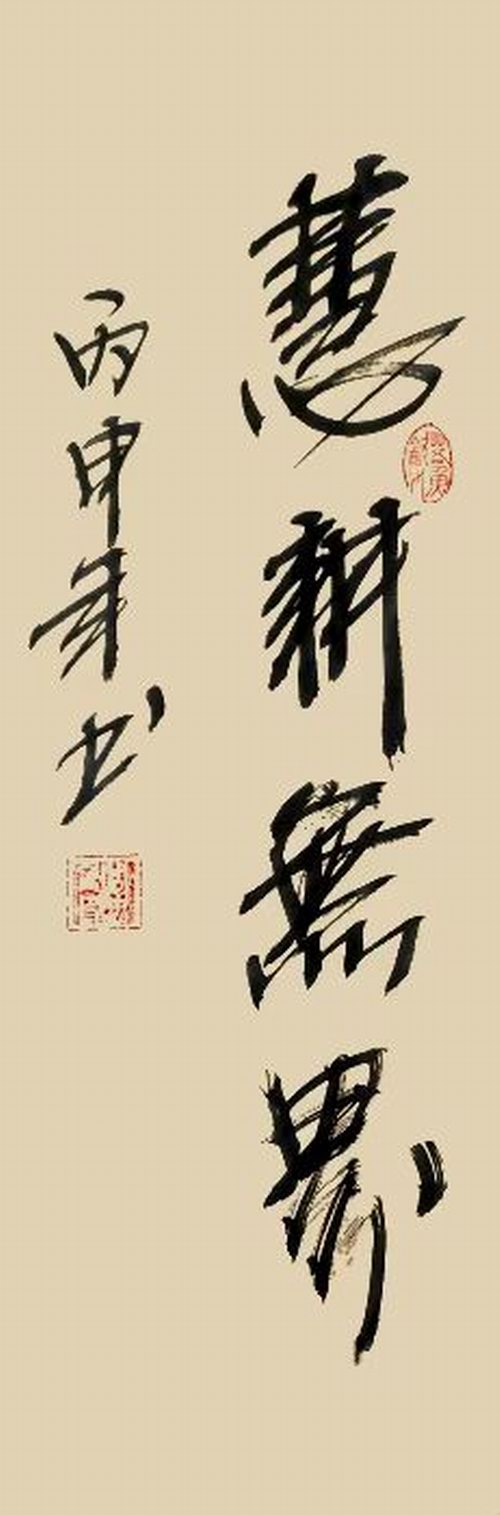 慧耕無界
丙申年书